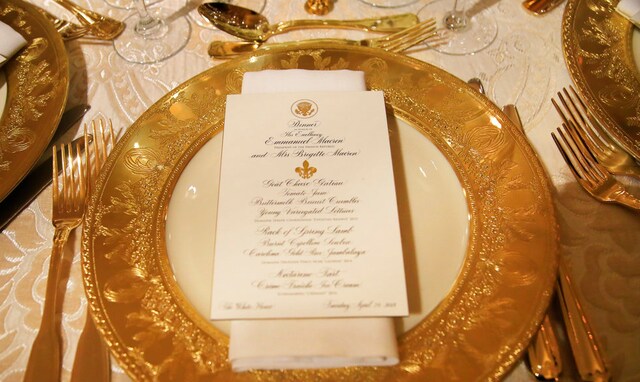 Dinner
His Excellency
Emmanuel Macron
and Mrs Brigitte Macron
Goat Cheese Gateau
Tomato Jam
Buttermilk Biscuit Crumbles
Young Variegated Lettuces
Rack of Spring Lamb
Burnt Cipollini Soubise
Carolina Gold Rice Jambalaya
Nectarine Tart
Crème Fraîche Ice Cream
The White House
Tuesday, April 24, 2018